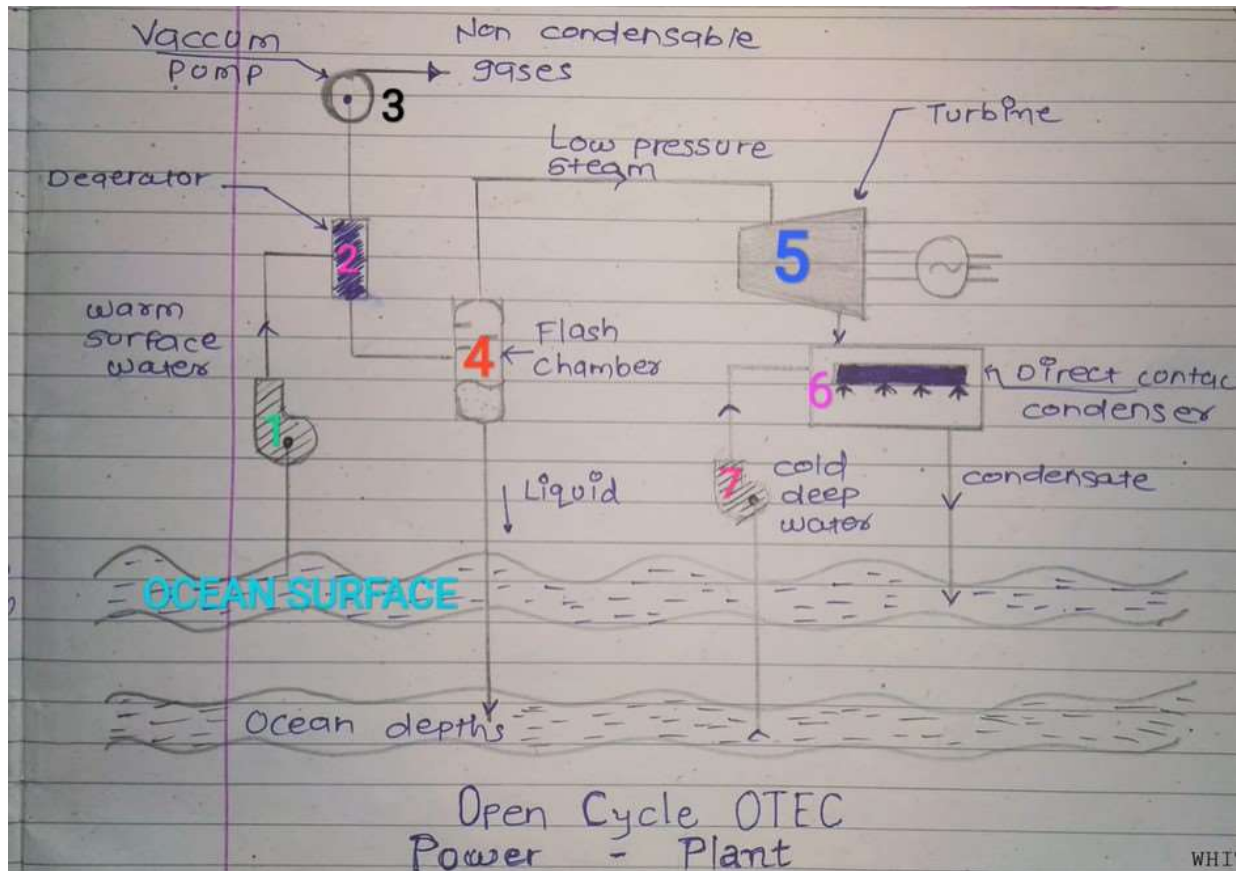 Vaccum
Pomp
Non condensable
gases
3
Turbine
Low pressure
steam
Deaerator
2
5
warm
surface
water
4
Flash
chamber
6
Direct contac
condenser
1
7
cold
deep
water
condensate
Liquid
OCEAN SURFACE
Ocean depths
Open Cycle OTEC
Power - Plant
WHIT